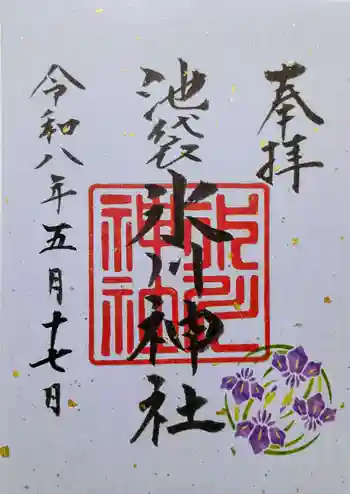 奉拝
池袋氷川神社
令和八年五月十七日
氷川
神社